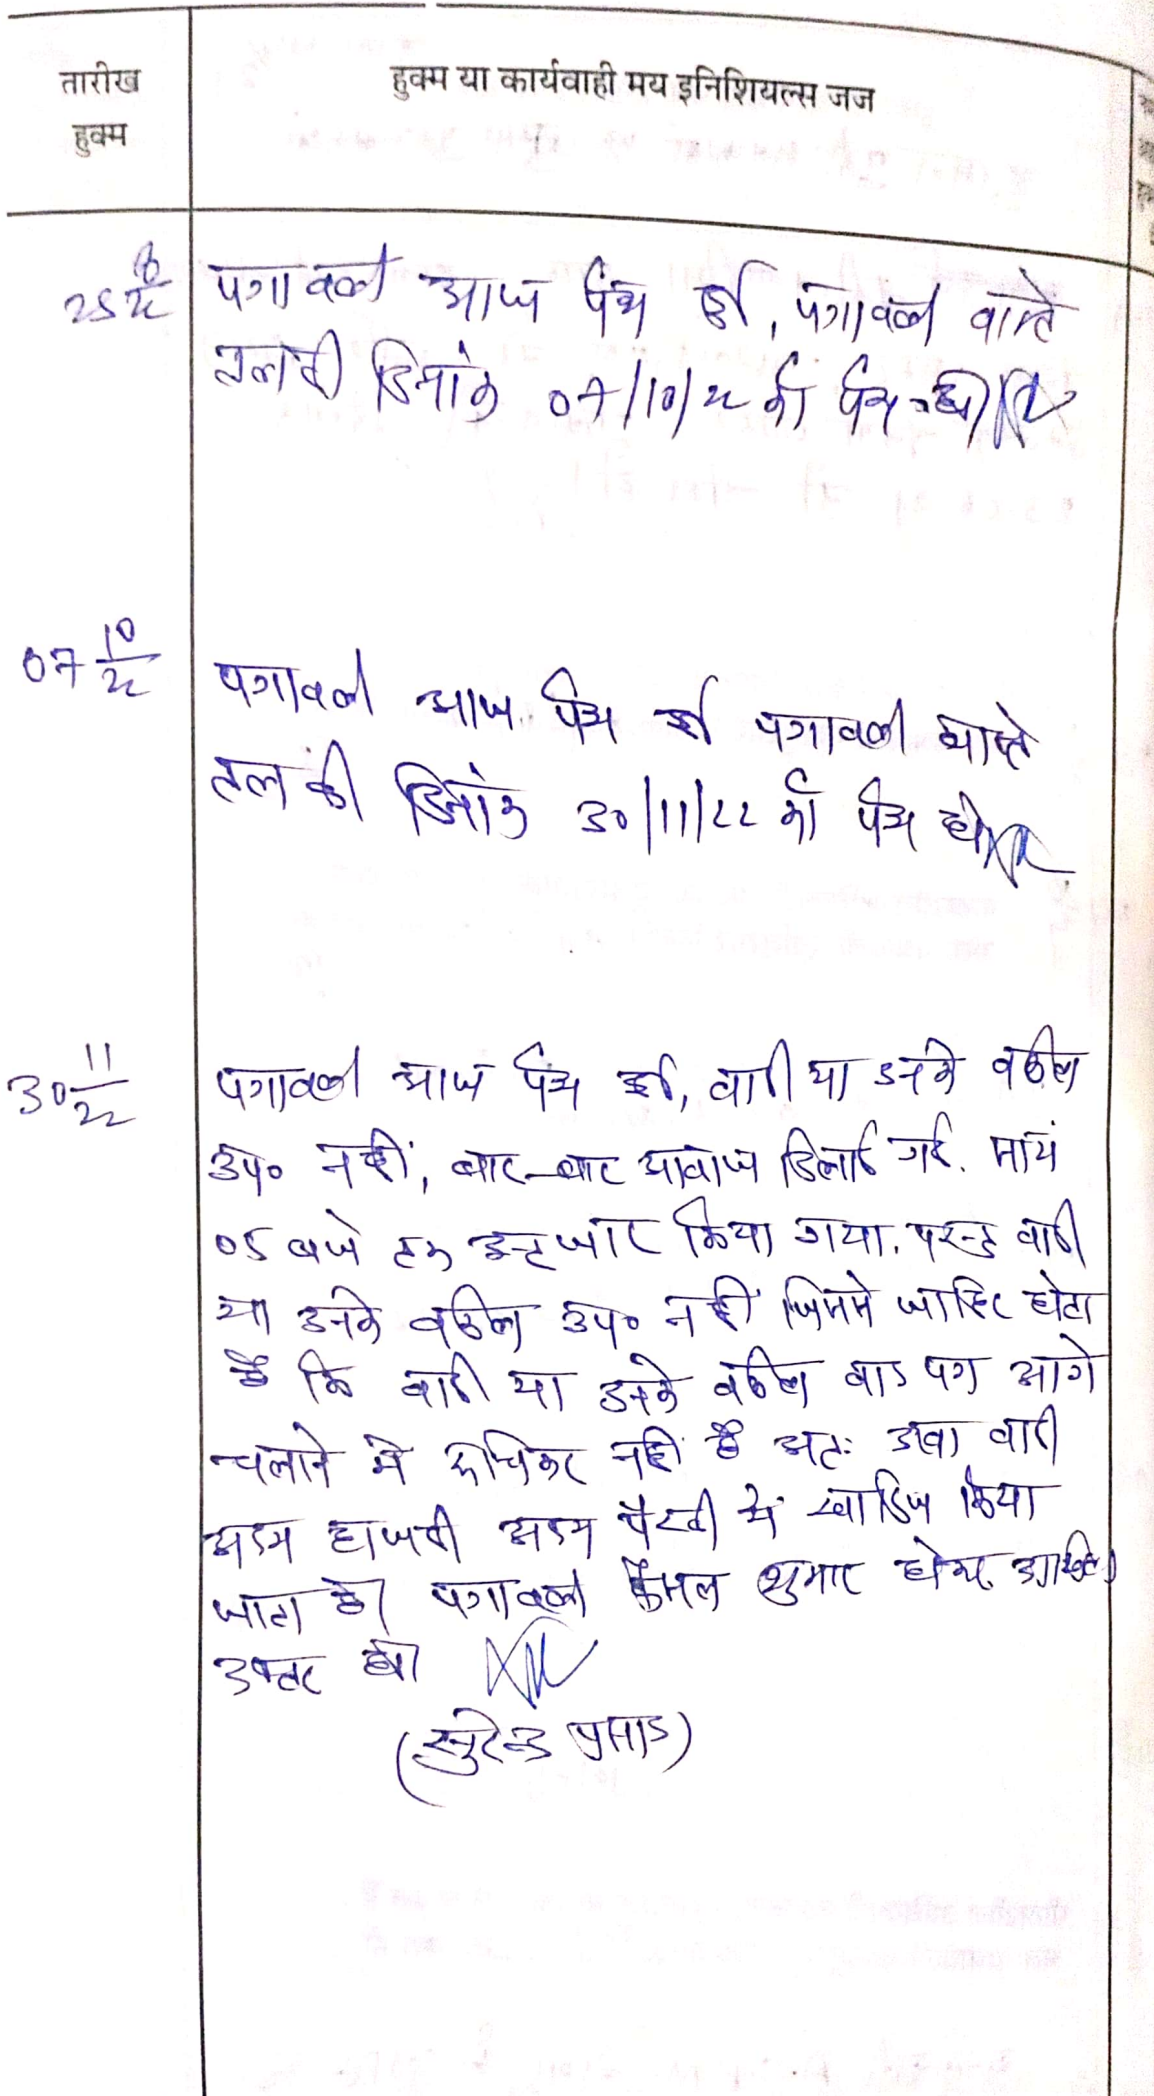 तारीख
हुक्म
हुक्म या कार्यवाही मय इनिशियल्स जज
25 8/22 पत्रावली आज पेश हुई, पत्रावली वास्ते
तलबी दिनांक 07/10/22 को पेश हो।
07 10/22 पत्रावली आज पेश हुई पत्रावली वास्ते
तलबी दिनांक 30/11/22 को पेश हो
30 11/22 पत्रावली आज पेश हुई, वादी या उनके वकील
उप० नहीं, बार-बार आवाज दिलाई गई. सायं
05 बजे तक इन्तजार किया गया. परन्तु वादी
या उनके वकील उप० नहीं जिससे जाहिर होता
है कि वादी या उनके वकील वाद पत्र आगे
चलाने में रूचिकर नहीं है अतः वादी
अदम हाजरी अदम पैरवी में खारिज किया
जाता है। पत्रावली फैसल शुमार होकर दाखिल
दफ्तर हो।
(सुरेन्द्र प्रसाद)